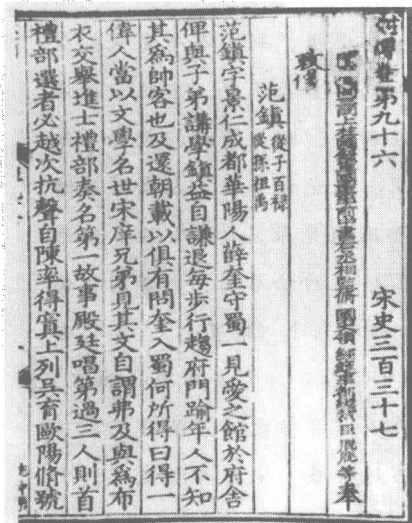 列傳卷第九十六 宋史三百三十七
敕修
范鎮 從子百祿 從孫祖禹
范鎮字景仁成都華陽人薛奎守蜀一見愛之館於府舍
俾與子弟講學鎮益自謙退每步行趨府門踰年人不知
其為帥客也及還朝載以俱有問奎入蜀何所得曰得一
偉人當以文學名世宋庠兄弟見其文自謂弗及與為布
衣交舉進士禮部奏名第一故事殿廷唱第過三人則首
禮部選者必越次抗聲自陳率得寘上列吳育歐陽脩號